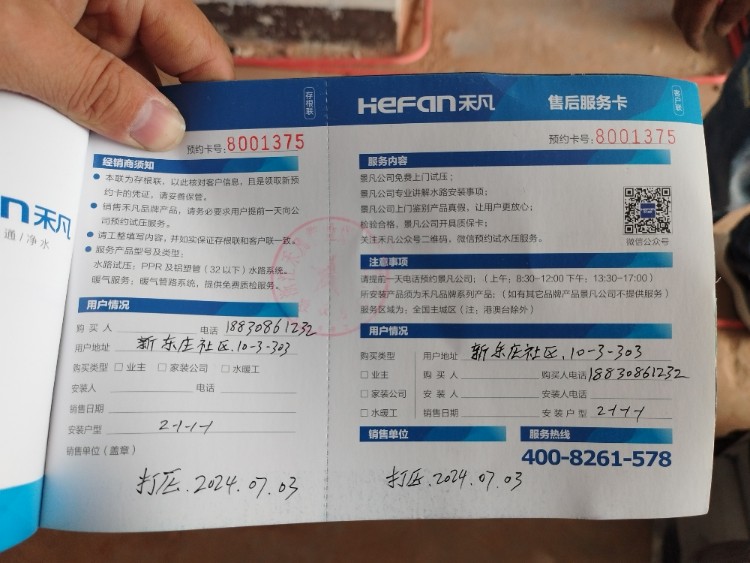 n禾凡
通/净水
存根联
预约卡号:8001375
经销商须知
本联为存根联,以此核对客户信息,且是领取新预
约卡的凭证,请妥善保管。
销售禾凡品牌产品,请务必要求用户提前一天向公
司预约试压服务。
请工整填写内容,并如实保证存根联和客户联一致。
服务产品型号及类型:
水路试压:PPR 及铝塑管(32以下)水路系统。
暖气服务:暖气管路系统,提供免费质检服务。
用户情况
购 买 人 电话 18830861232
用户地址 新东庄社区.10-3-303
购买类型 □ 业主 □ 家装公司 □ 水暖工
安装人 电话
销售日期
安装户型 2-1-1-1
销售单位(盖章)
打压.2024.07.03
HeFan禾凡 售后服务卡
客户联
预约卡号:8001375
服务内容
景凡公司免费上门试压;
景凡公司专业讲解水路安装事项;
景凡公司上门鉴别产品真假,让用户更放心;
检验合格,景凡公司开具质保卡;
关注禾凡公众号二维码,微信预约试水压服务。
微信公众号
注意事项
请提前一天电话预约景凡公司;(上午:8:30-12:00 下午:13:30-17:00)
所安装产品须为禾凡品牌系列产品;(如有其它品牌产品景凡公司不提供服务)
服务区域为:全国主城区(注:港澳台除外)
用户情况
购买类型 用户地址 新东庄社区.10-3-303
□ 业主 购 买 人 购买人电话 18830861232
□ 家装公司 安 装 人 安装人电话
□ 水暖工 销售日期 安装户型 2-1-1-1
销售单位 服务热线
400-8261-578
打压.2024.07.03